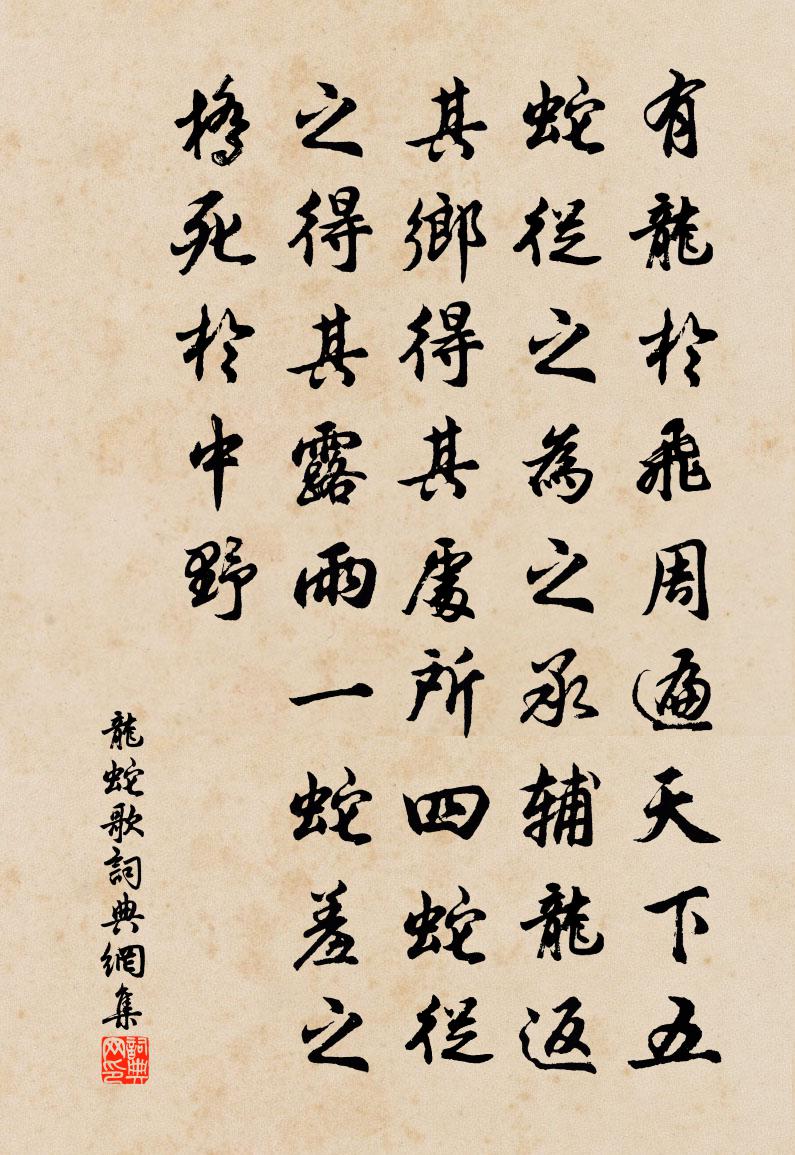 有龍於飛周遍天下五
蛇從之為之承輔龍返
其鄉得其處所四蛇從
之得其露雨一蛇羞之
橋死於中野
龍蛇歌詞典網集
詞典网印